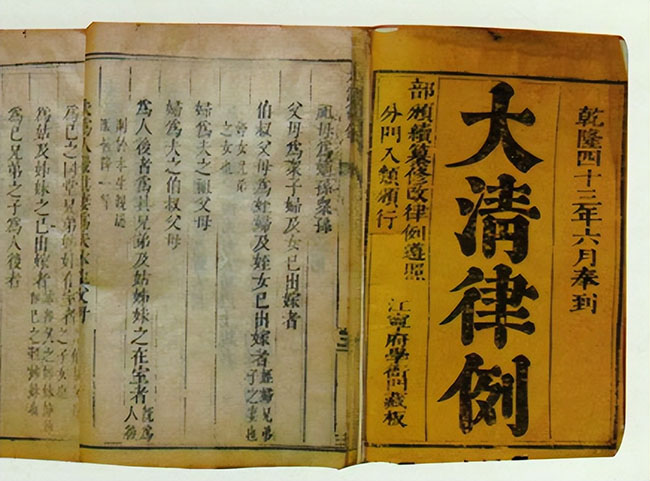 乾隆四十三年六月奉到
大清律例
部頒續纂修改律例遵照
分門入類頒行
江寧府學衙門藏板
祖母為嫡孫衆孫
父母為衆子婦及女已出嫁者
伯叔父母為姪婦及姪女已出嫁者 姪婦兄弟子之妻也
之女也
婦為夫之祖父母
婦為夫之伯叔父母
為人後者為其兄弟及姑姊妹之在室者 既為人後
則於本生親屬
服皆降一等
為己之同堂兄弟姊妹在室者
為姑及姊妹之已出嫁者
為己兄弟之子為人後者